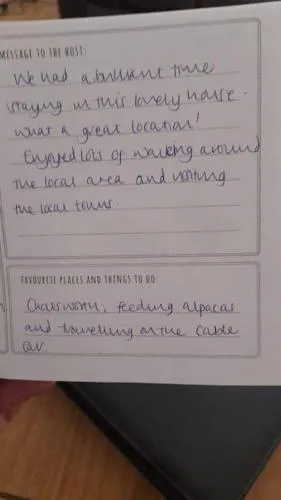 MESSAGE TO THE HOST:
We had a brilliant time
staying in this lovely house -
what a great location!
Enjoyed lots of walking around
the local area and visiting
the local towns
FAVOURITE PLACES AND THINGS TO DO:
Chatsworth, feeding alpacas
and travelling on the cable
car.